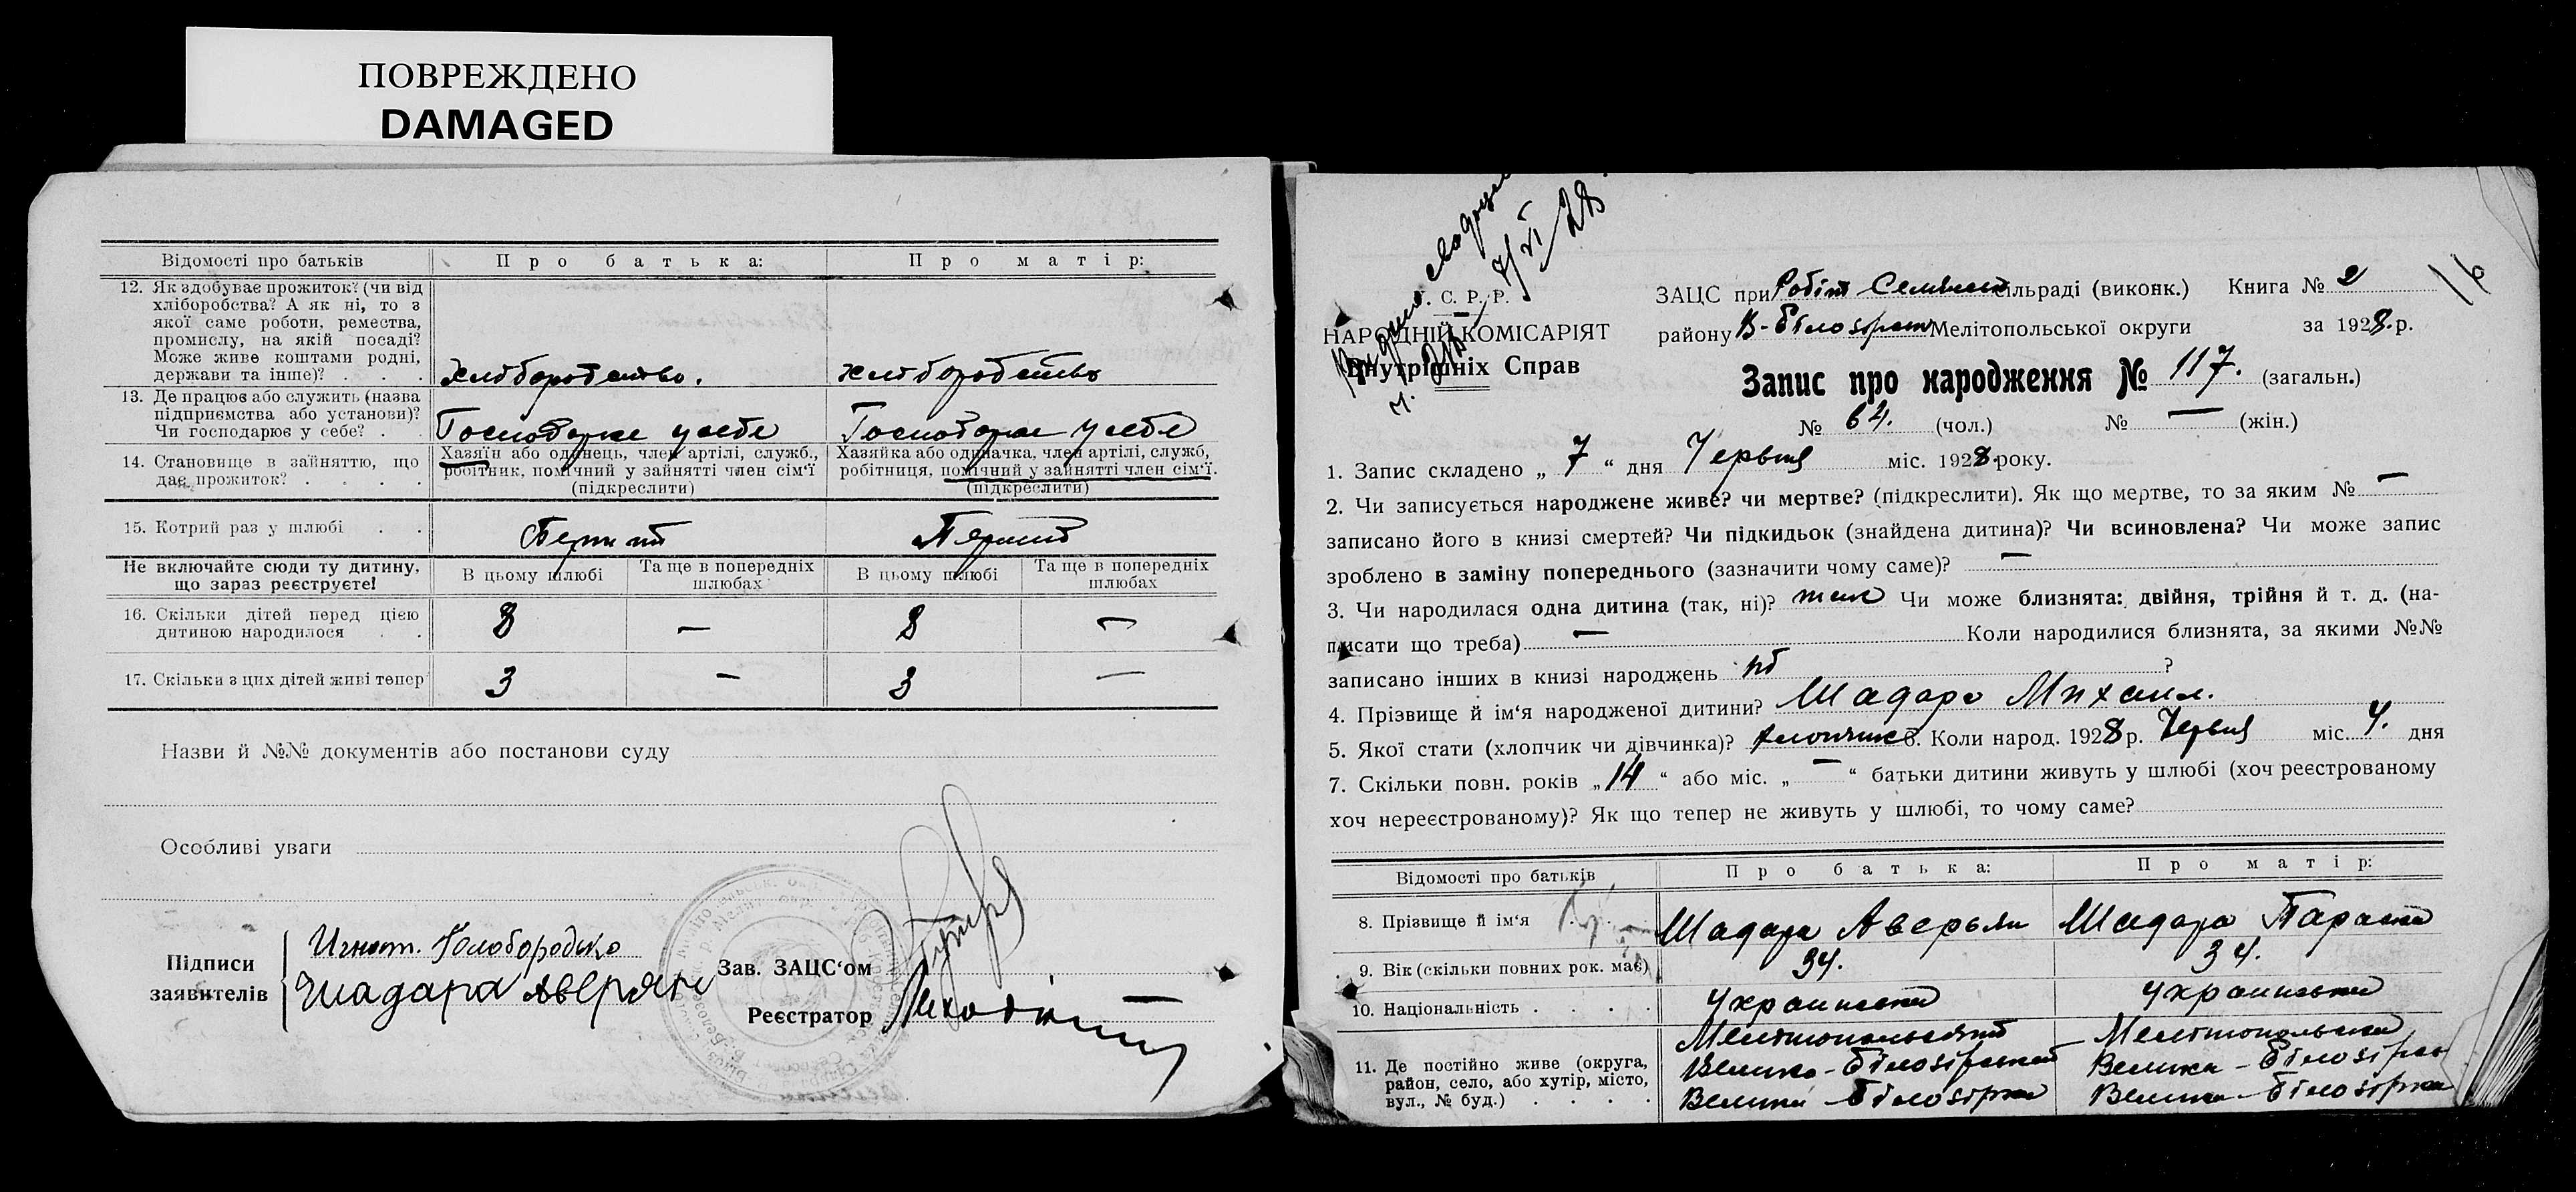 ПОВРЕЖДЕНО
DAMAGED
Відомості про батьків
Про батька:
Про матір:
12. Як здобуває прожиток? (чи від
хліборобства? А як ні, то з
якої саме роботи, ремества,
промислу, на якій посаді?
Може живе коштами родні,
держави та інше)? . . .
Хліборобство.
хліборобство
13. Де працює або служить (назва
підприємства або установи)?
Чи господарює у себе? .
Господарює у себе
Господарює у себе
14. Становище в зайняттю, що
дає прожиток? . . . .
Хазяїн або одинець, член артілі, служб.,
робітник, помічний у зайнятті член сім'ї
(підкреслити)
Хазяйка або одиначка, член артілі, служб,
робітниця, помічний у зайнятті член сім'ї.
(підкреслити)
15. Котрий раз у шлюбі . .
Перший
Перший
Не включайте сюди ту дитину,
що зараз реєструєте!
В цьому шлюбі
Та ще в попередніх
шлюбах
В цьому шлюбі
Та ще в попередніх
шлюбах
16. Скільки дітей перед цією
дитиною народилося . .
8 — 8 —
17. Скільки з цих дітей живі тепер
3 — 3 —
Назви й №№ документів або постанови суду
Особливі уваги
Підписи
заявителів
Игнат. Голобородько
Шадара Аверян
Зав. ЗАЦС'ом
Реєстратор
7/VI 28
С. Р. Р.
НАРОДНІЙ КОМІСАРІЯТ
Внутрішніх Справ
ЗАЦС при сільраді (виконк.) Книга № 2
16
району В-Білозірськ Мелітопольської округи за 1928.р.
Запис про народження № 117. (загальн.)
№ 64. (чол.) № — (жін.)
1. Запис складено „ 7 “ дня Червня міс. 1928 року.
2. Чи записується народжене живе? чи мертве? (підкреслити). Як що мертве, то за яким № —
записано його в книзі смертей? Чи підкидьок (знайдена дитина)? Чи всиновлена? Чи може запис
зроблено в заміну попереднього (зазначити чому саме)? —
3. Чи народилася одна дитина (так, ні)? так Чи може близнята: двійня, трійня й т. д. (на-
писати що треба) — Коли народилися близнята, за якими №№
записано інших в книзі народжень ні ?
4. Прізвище й ім'я народженої дитини? Шадара Михаил.
5. Якої стати (хлопчик чи дівчинка)? хлопчик 6. Коли народ. 1928 р. Червня міс. 4. дня
7. Скільки повн. років „14“ або міс. „—“ батьки дитини живуть у шлюбі (хоч реєстрованому
хоч нереєстрованому)? Як що тепер не живуть у шлюбі, то чому саме?
Відомості про батьків
Про батька:
Про матір:
8. Прізвище й ім'я . . .
Шадара Аверьян
Шадара Параска
9. Вік (скільки повних рок. має)
34.
34.
10. Національність . . . .
Украинська
Украинська
11. Де постійно живе (округа,
район, село, або хутір, місто,
вул., № буд.) . . . .
Мелітопольський
Велико-Білозірський
Велика-Білозірка
Мелітопольська
Велика-Білозірсь
Велика-Білозірка